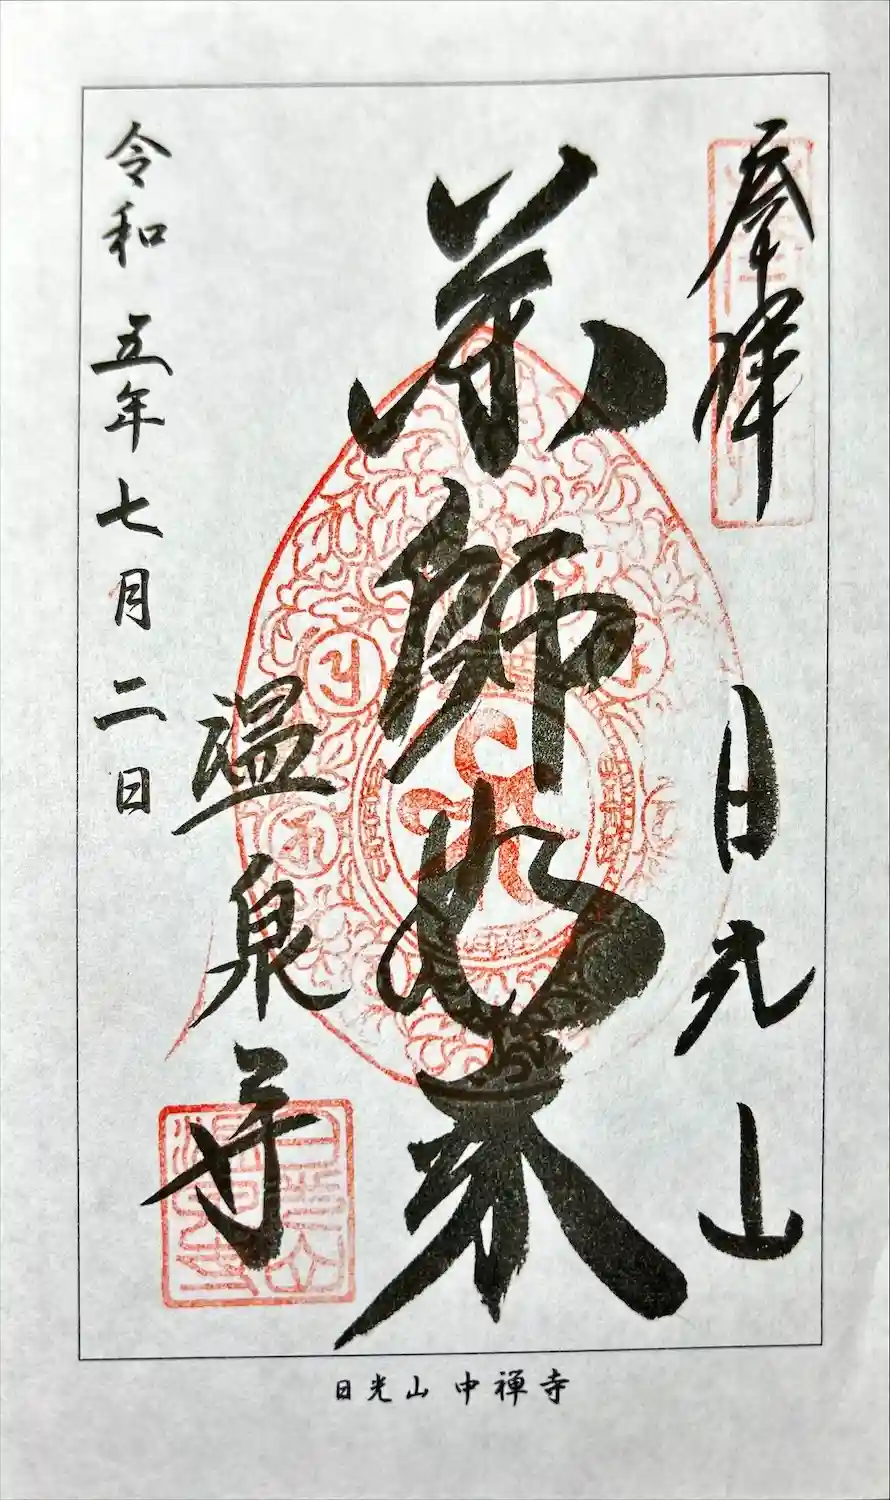 奉拝
日光山
薬師如来
温泉寺
令和五年七月二日
日光山 中禅寺